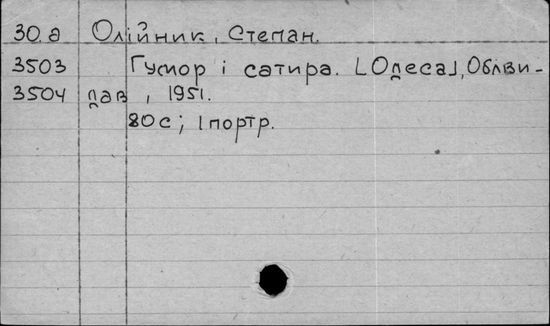 30.а Олійник, Степан.
3503 Гумор і сатира. [Одеса], Облви-
3504 дав, 1951.
80с; 1портр.